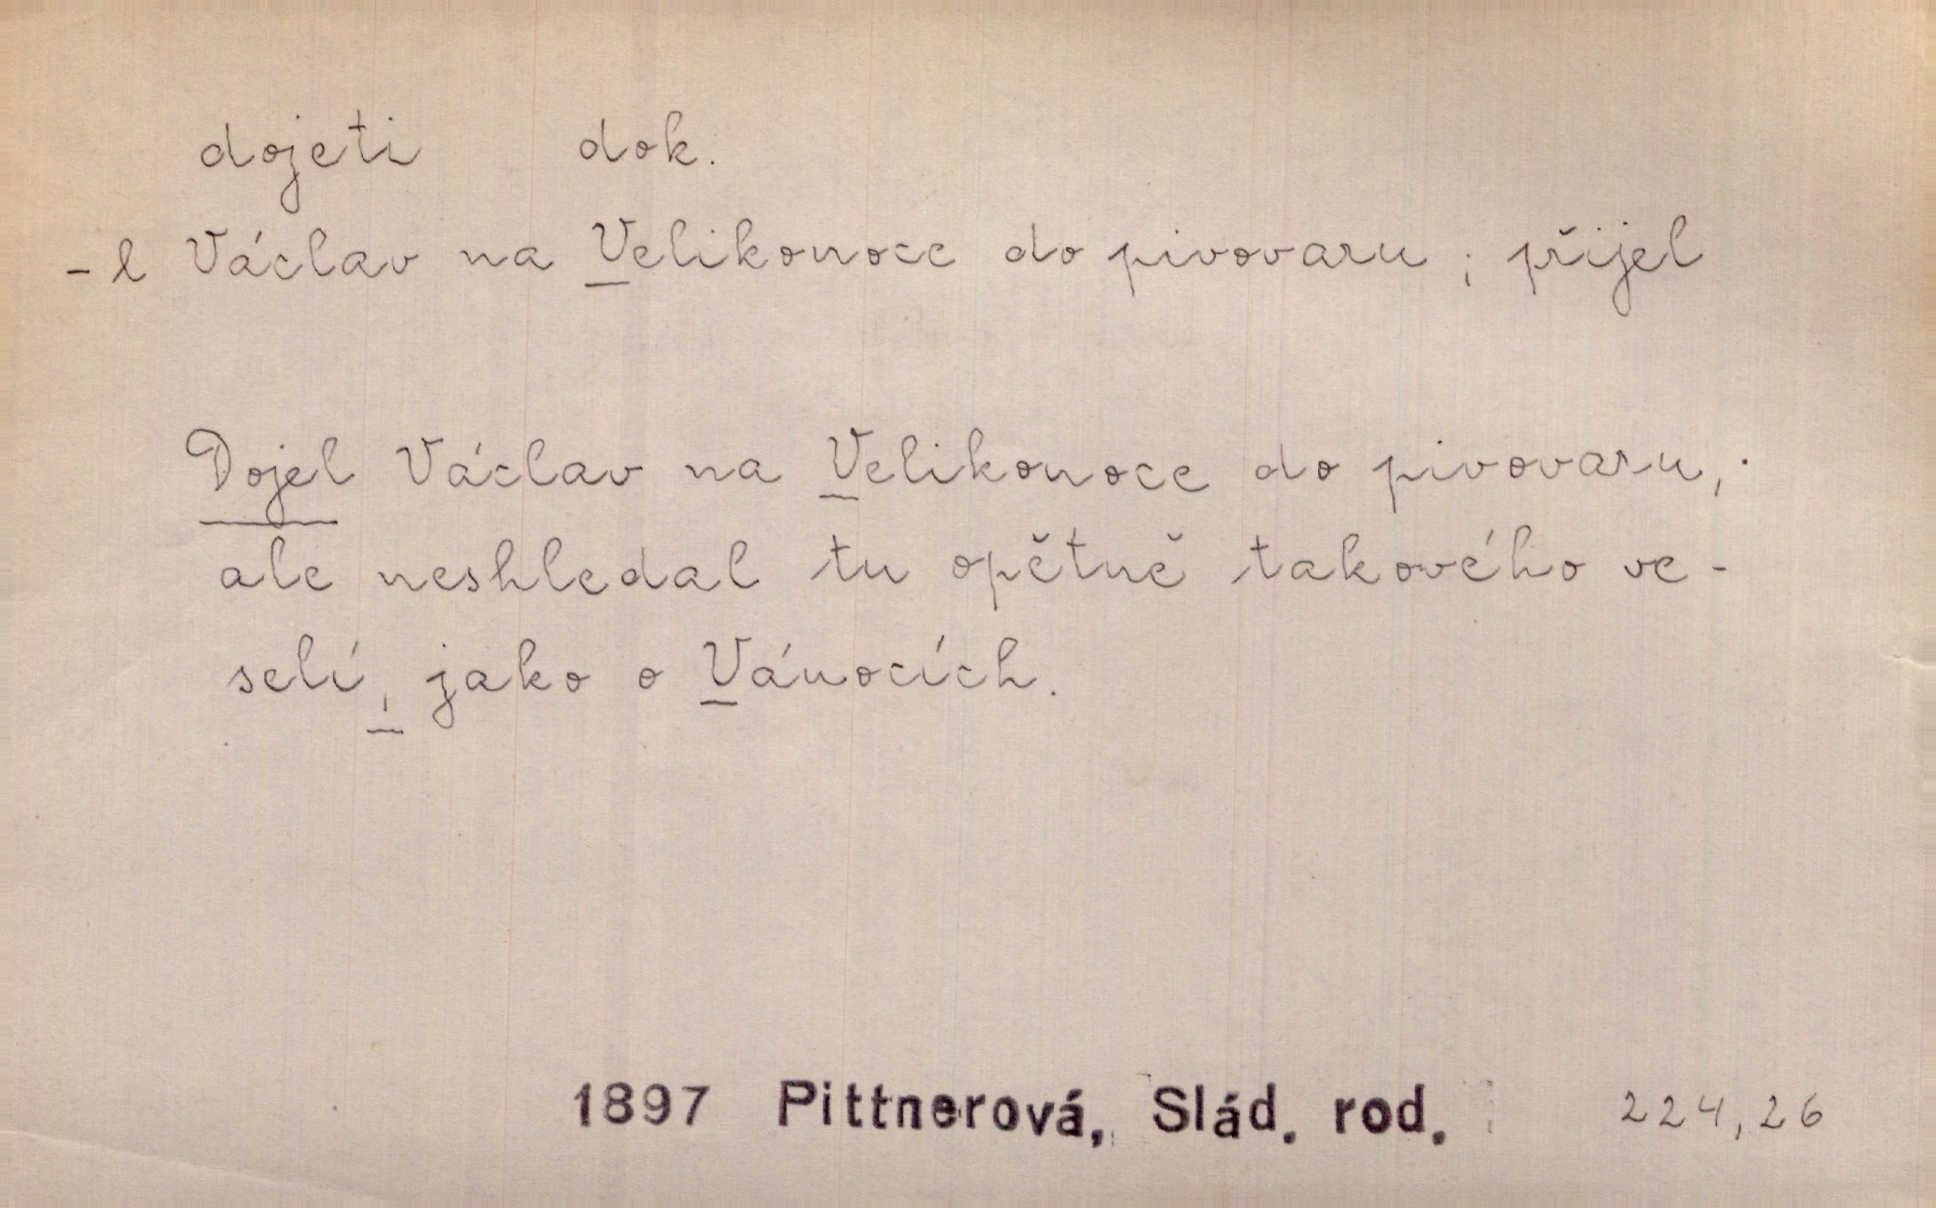 dojeti dok.
-l Václav na Velikonoce do pivovaru; přijel
Dojel Václav na Velikonoce do pivovaru,
ale neshledal tu opětně takového ve-
selí, jako o Vánocích.
1897 Pittnerová, Slád. rod. 224,26